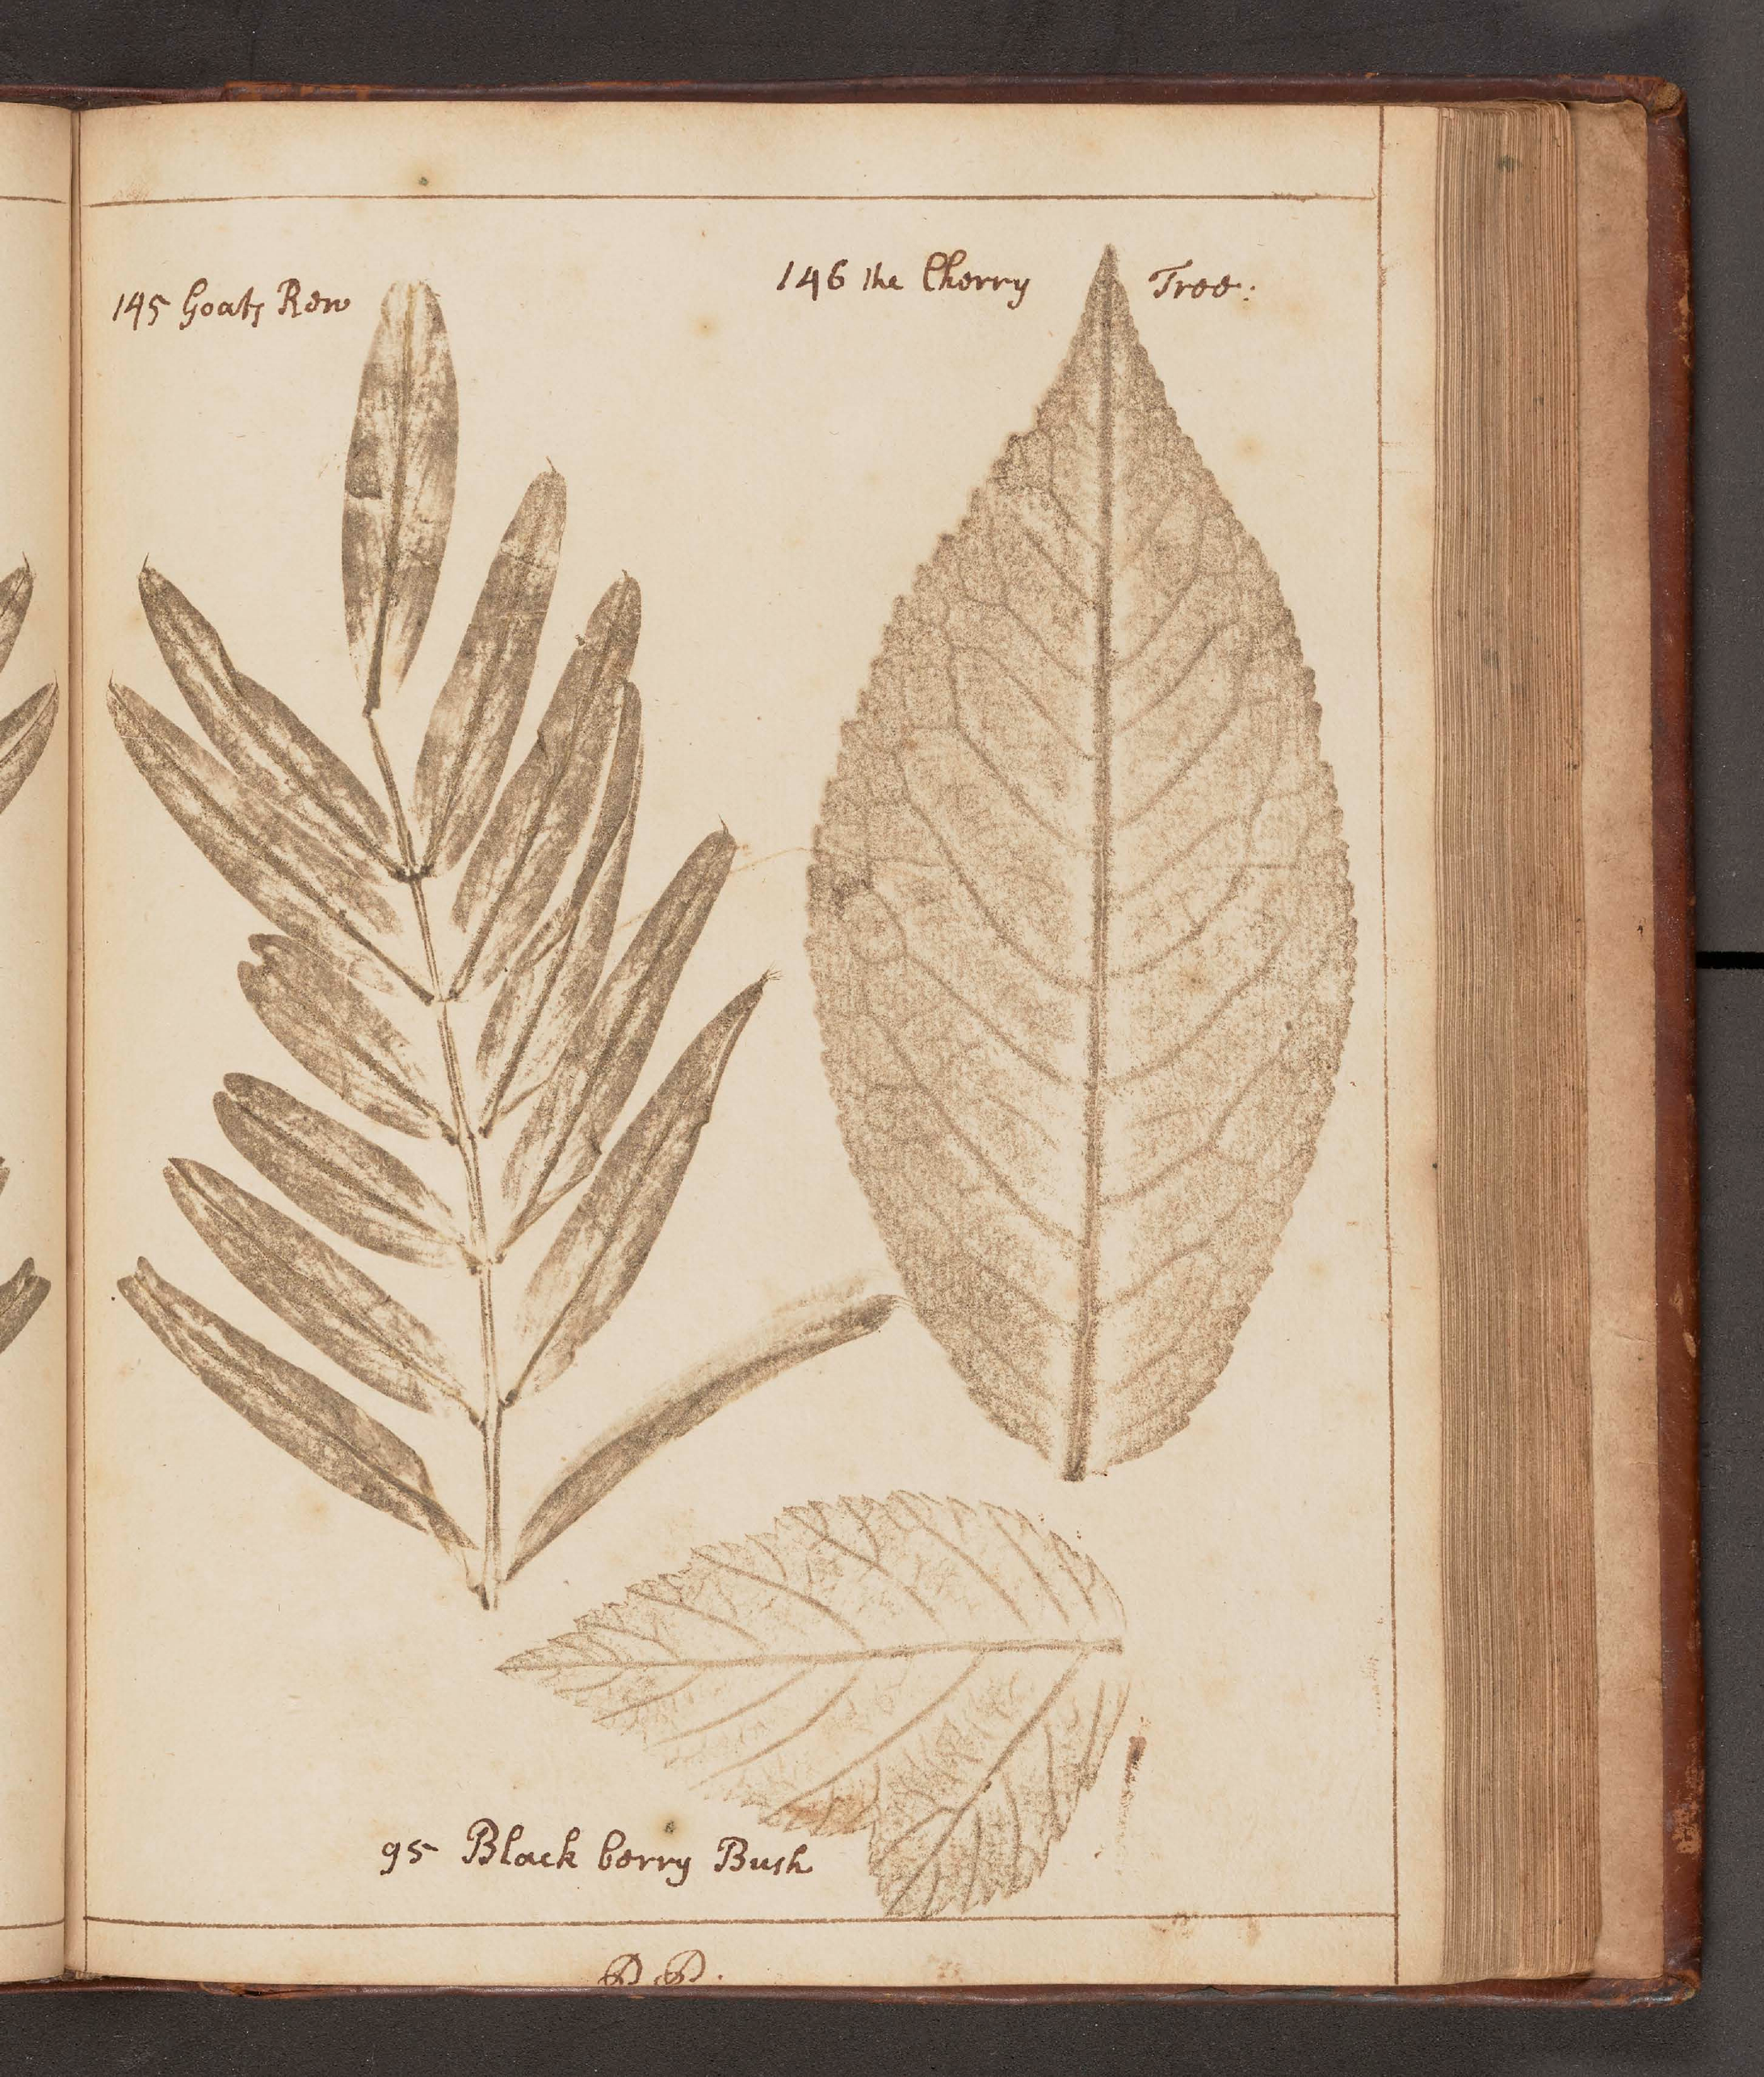 145 Goats Rew
146 the Cherry Tree:
95 Black berry Bush
D D.